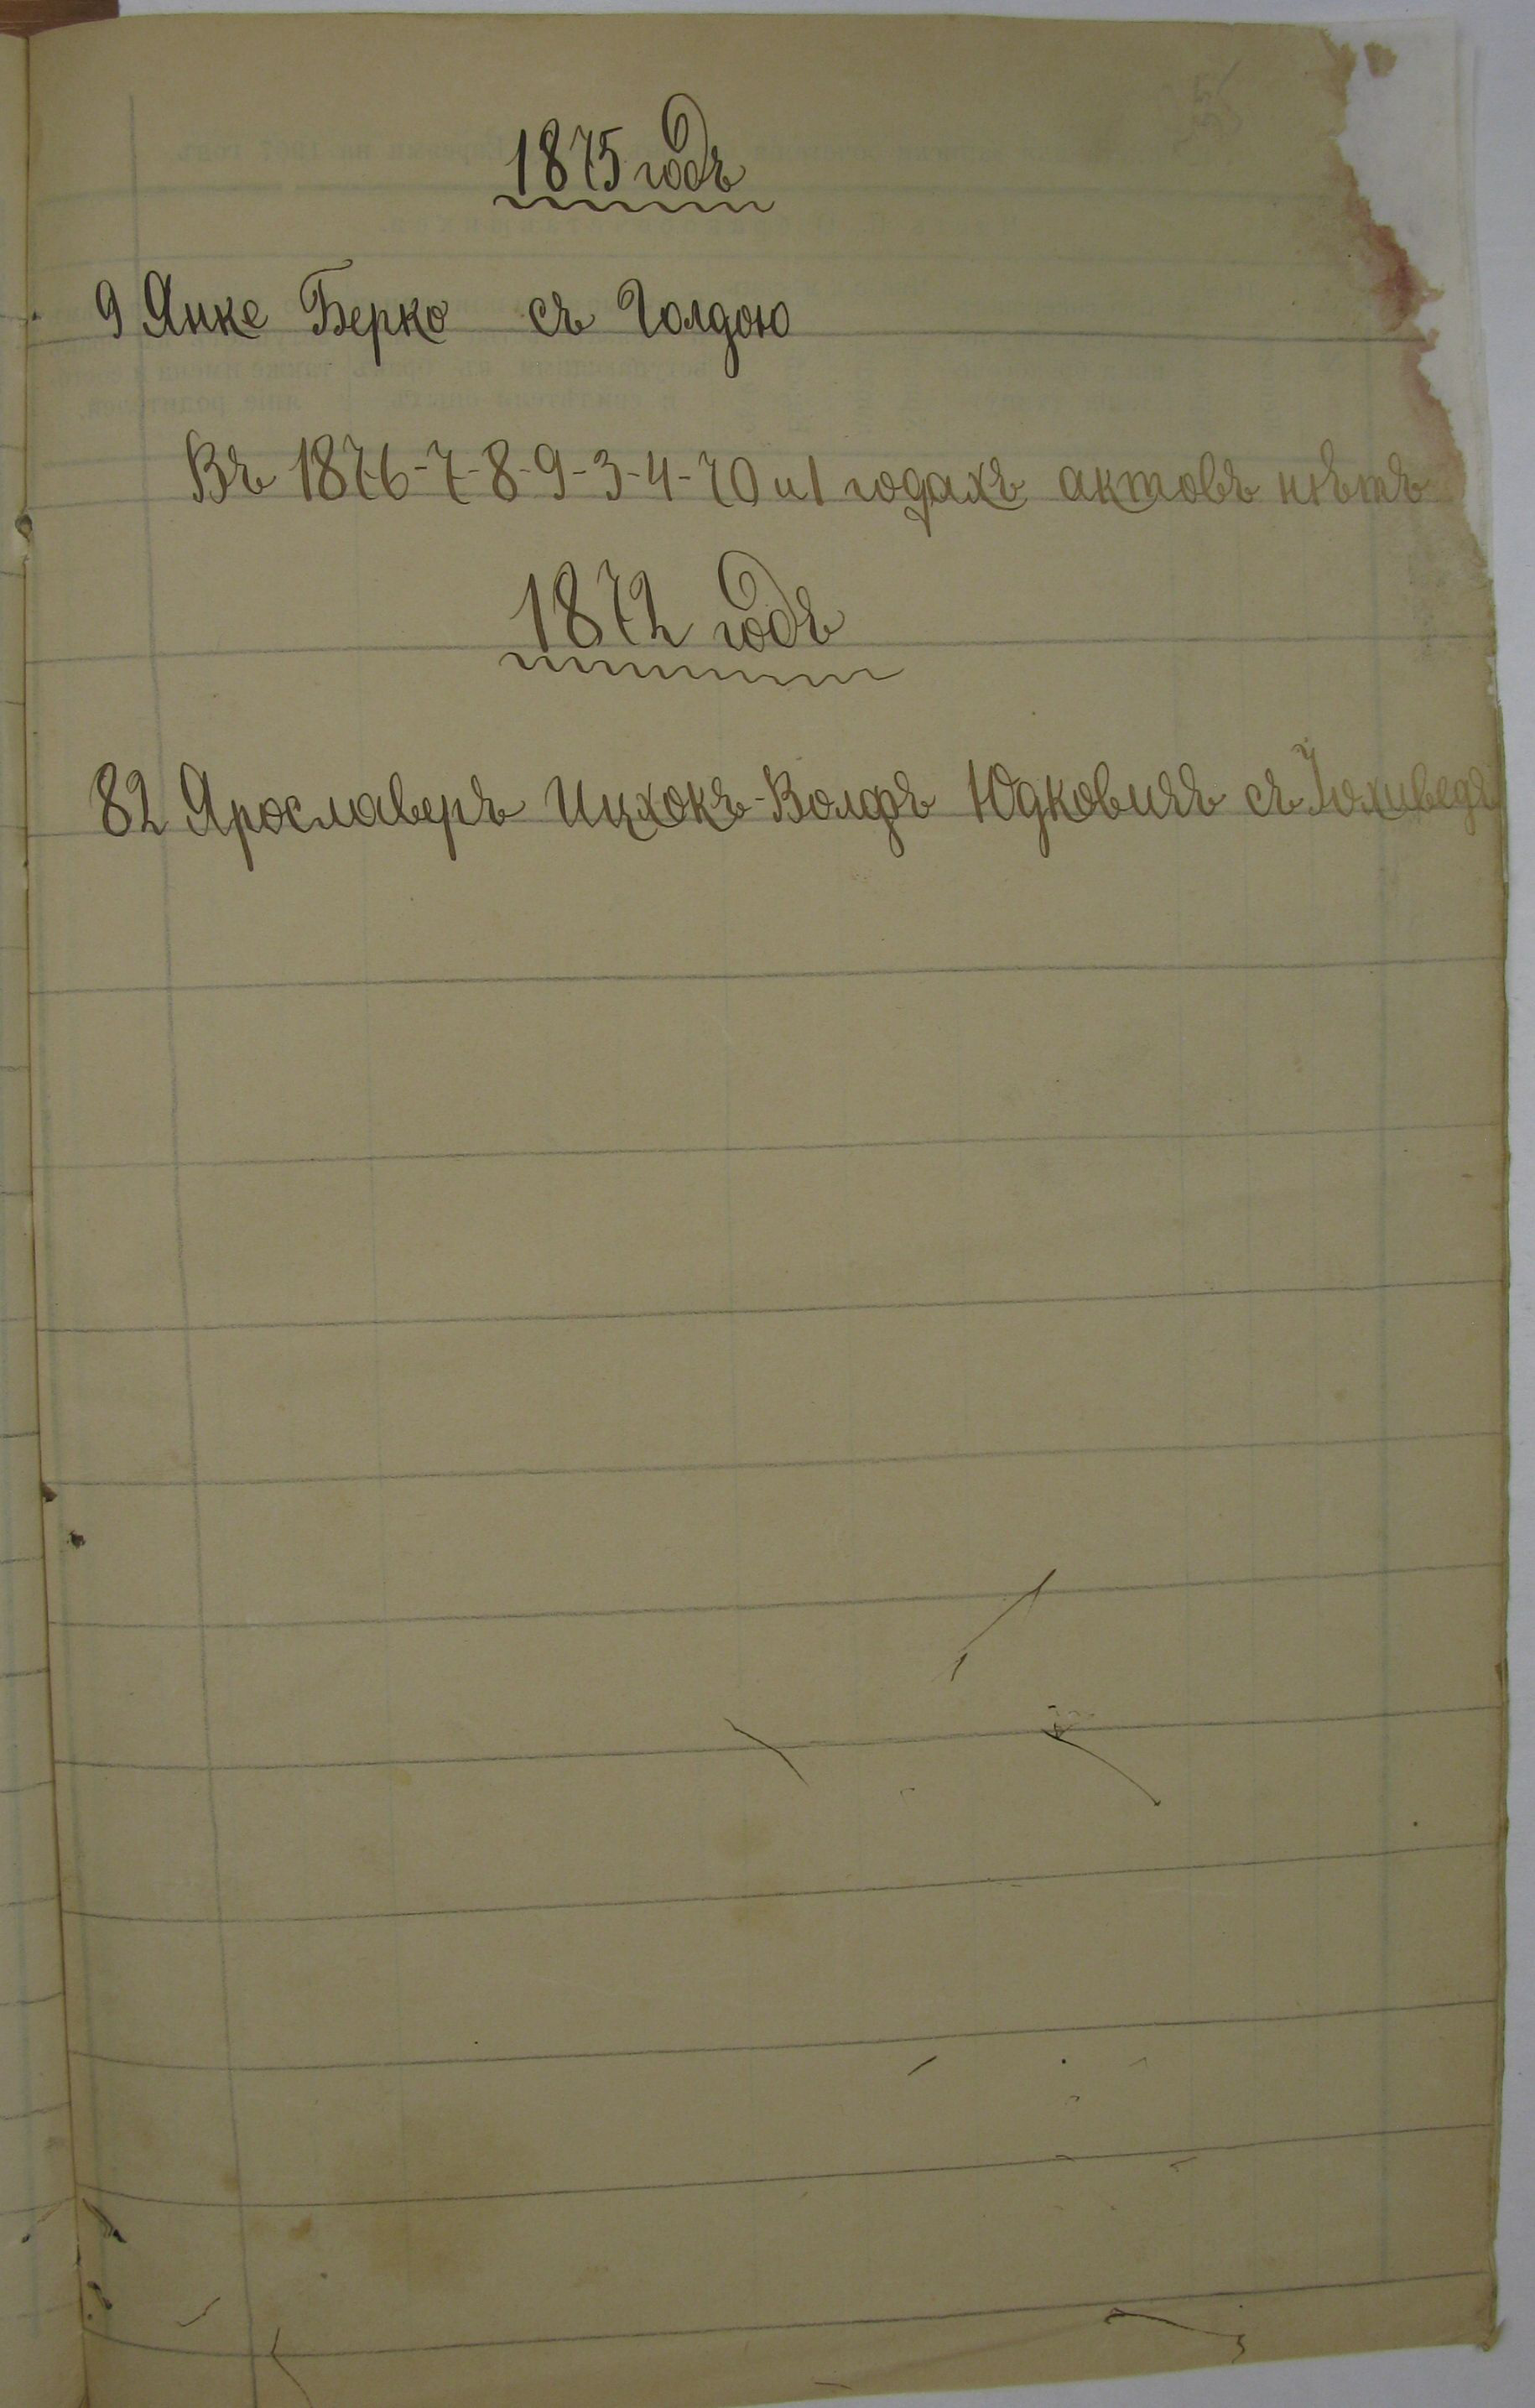 1875 годъ
9 Янке Берко съ Голдою
Въ 1876-7-8-9-3-4-70 и 1 годахъ актовъ нѣтъ
1872 годъ
82 Ярославеръ Ицхокъ-Волфъ Юдковичъ съ Іохиведъ